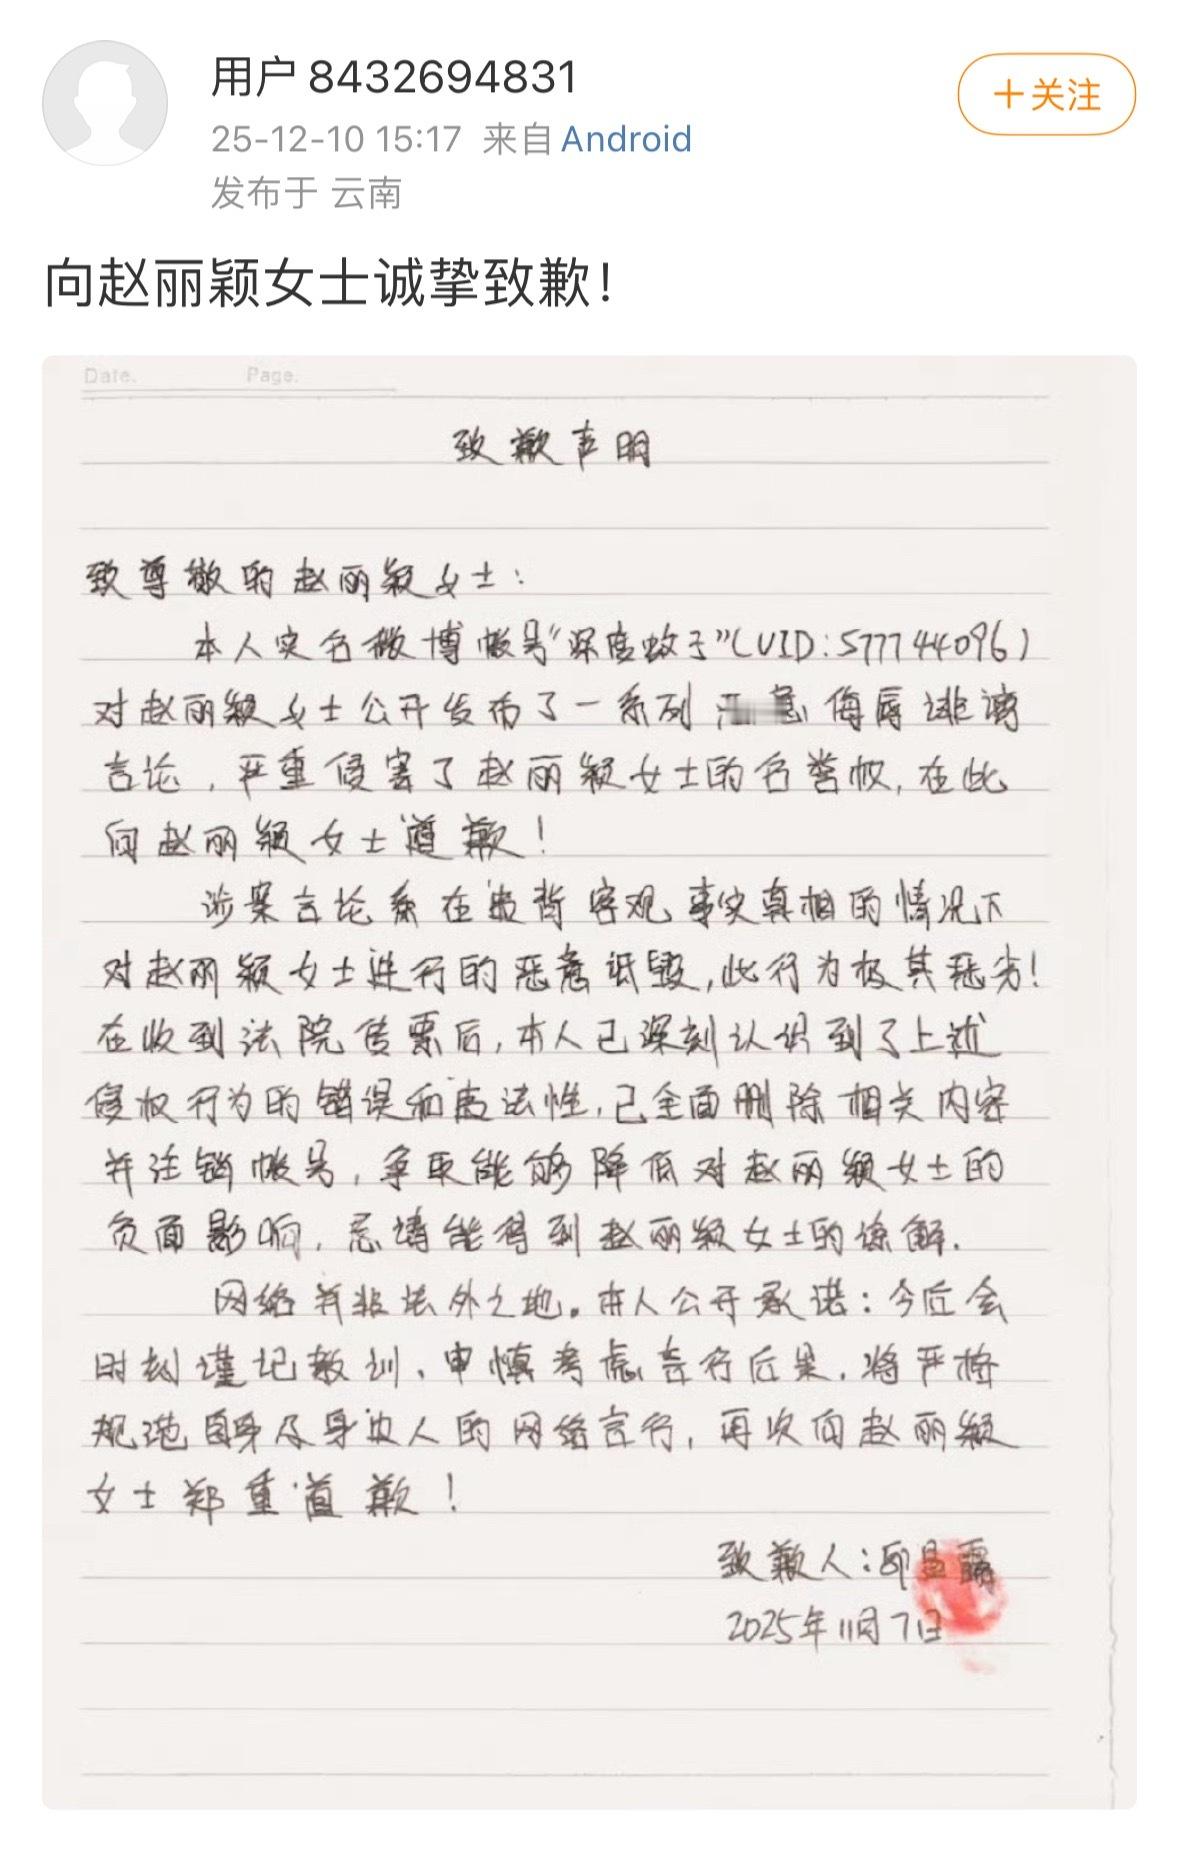 用户8432694831
+关注
25-12-10 15:17 来自 Android
发布于 云南
向赵丽颖女士诚挚致歉！
Date. Page.
致歉声明
致尊敬的赵丽颖女士：
本人实名微博帐号“深度蚊子”（UID：577744096）
对赵丽颖女士公开发布了一系列 侮辱诽谤
言论，严重侵害了赵丽颖女士的名誉权，在此
向赵丽颖女士道歉！
涉案言论系在违背客观事实真相的情况下
对赵丽颖女士进行的恶意诋毁，此行为极其恶劣！
在收到法院传票后，本人已深刻认识到了上述
侵权行为的错误和违法性，已全面删除相关内容
并注销帐号，争取能够降低对赵丽颖女士的
负面影响，恳请能得到赵丽颖女士的谅解.
网络并非法外之地。本人公开承诺：今后会
时刻谨记教训、审慎考虑言行后果，将严格
规范自身及身边人的网络言行，再次向赵丽颖
女士郑重道歉！
致歉人：
2025年11月7日